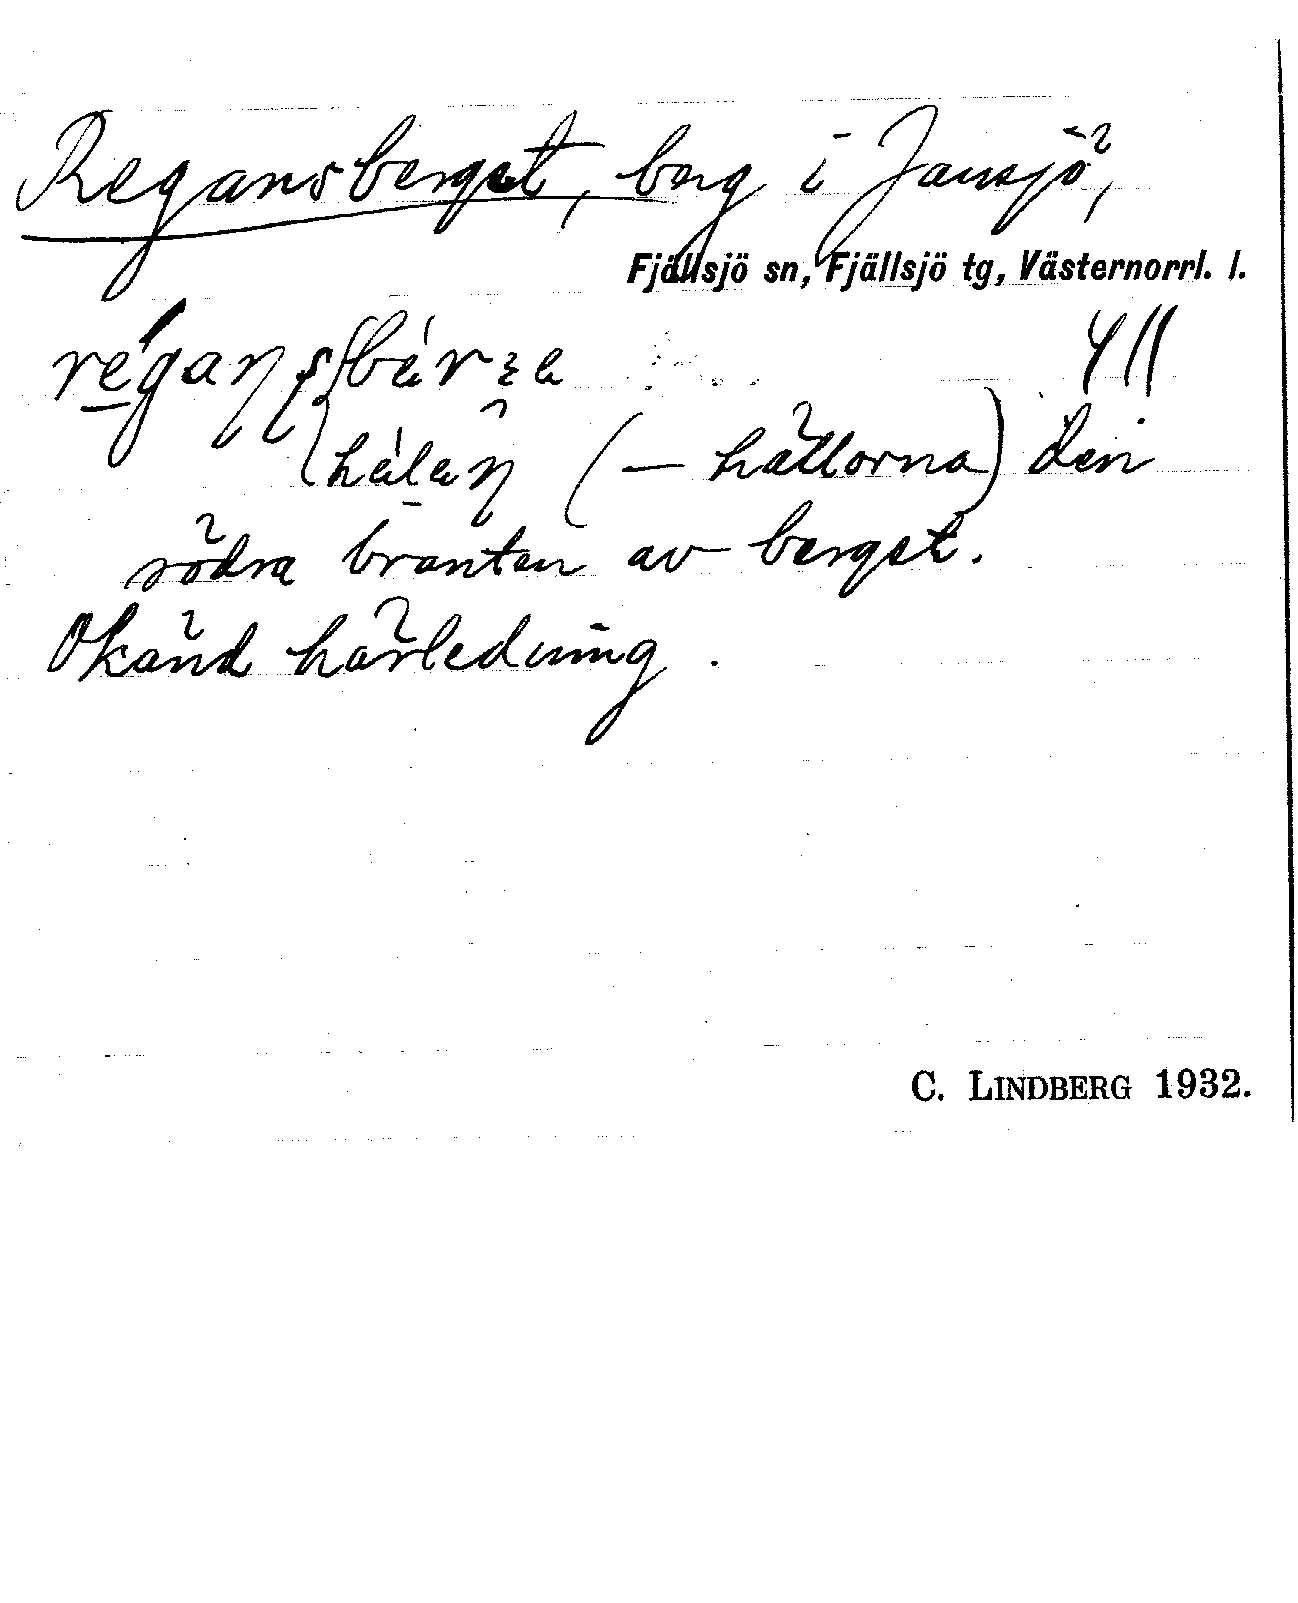 Regansberget, berg i Jansjö,
Fjällsjö sn, Fjällsjö tg, Västernorrl. l.
(– hällorna) den
södra branten av berget.
Okänd härledning.
C. LINDBERG 1932.